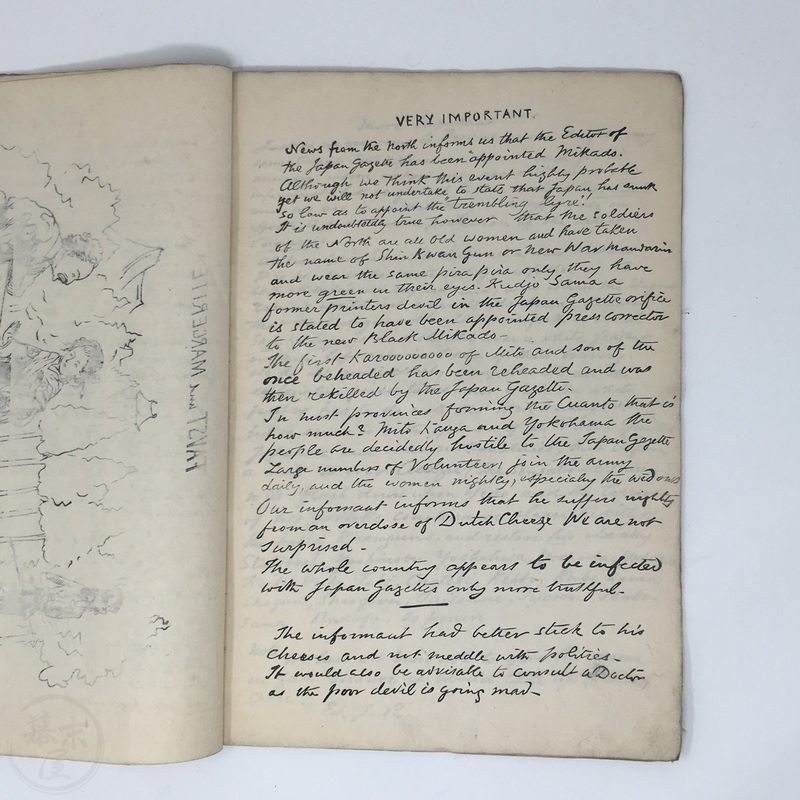 VERY IMPORTANT.
News from the North informs us that the Editor of
the Japan Gazette has been "appointed Mikado.
Although we think this event highly probable
yet we will not undertake to state that Japan has sunk
so low as to appoint the "trembling lyre!
It is undoubtedly true however that the soldiers
of the North are all old women and have taken
the name of Shin Kwan Gun or New War Mandarin
and wear the same pira pira only they have
more green in their eyes. Kudjo Sama a
former printers devil in the Japan Gazette orifice
is stated to have been appointed press corrector
to the new Black Mikado-
The first Karoooooooooo of Mito and son of the
once beheaded has been reheaded and was
then rekilled by the Japan Gazette.
In most provinces forming the Cuanto that is
how much? Mito Kanga and Yokohama the
people are decidedly hostile to the Japan Gazette
Large numbers of Volunteers join the army
daily, and the women nightly, especially the
Our informant informs that he suffers nightly
from an overdose of Dutch Cheeze We are not
surprised -
The whole country appears to be infected
with Japan Gazettes only more truthful.-
The informant had better stick to his
cheeses and not meddle with politics-
It would also be advisable to consult a Doctor
as the poor devil is going mad-
FAUST und MARGERITE
幕末屋